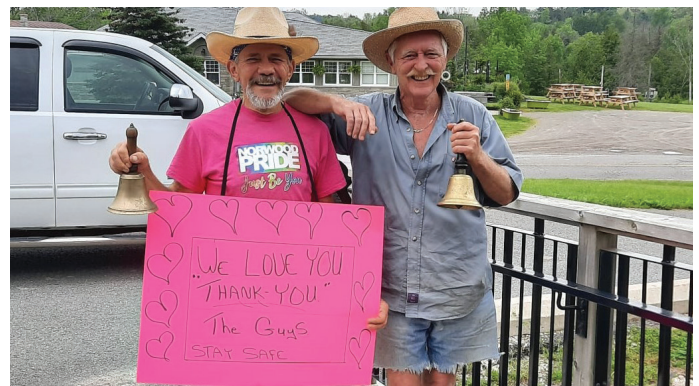 NORWOOD
PRIDE
Just Be You
"WE LOVE YOU
THANK-YOU"
The Guys
STAY SAFE